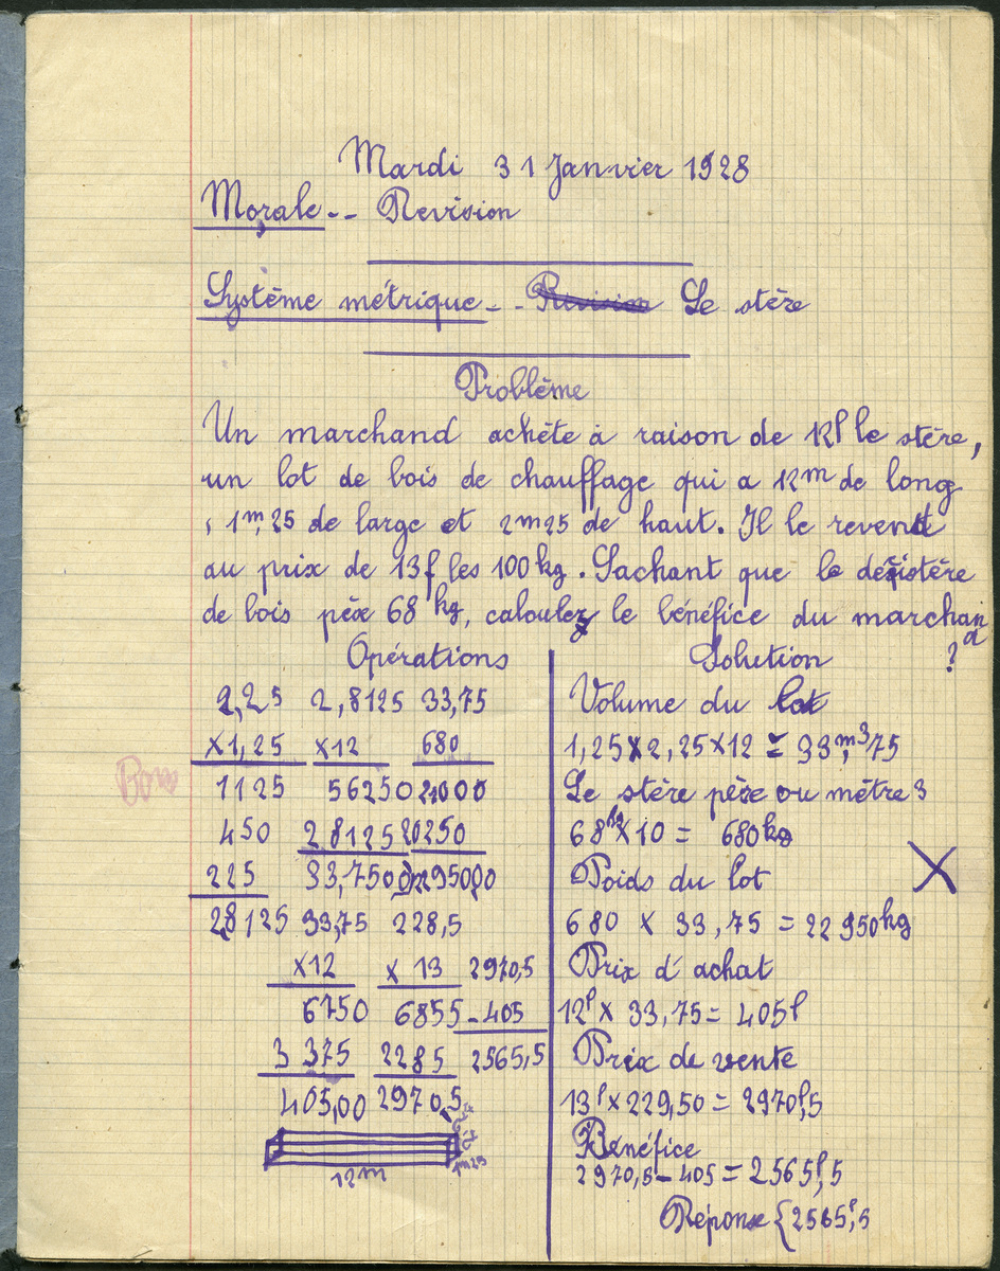 Mardi 31 Janvier 1928
Morale -- Revision
Système métrique -- Revision Le stère
Problème
Un marchand achète à raison de 12f le stère,
un lot de bois de chauffage qui a 12m de long
, 1m,25 de large et 2m25 de haut. Il le revend
au prix de 13f les 100 kg. Sachant que le décistère
de bois pèse 68 kg, calculez le bénéfice du marchand
?
Opérations
2,25 2,8125 33,75
×1,25 ×12 680
1125 56250 27000
450 28125 20250
225 33,7500 2295000
28125 33,75 228,5
×12 × 13 2970,5
6750 6855 - 405
3 375 2285 2565,5
405,00 2970,5
12m
1m25
Bon
Solution
Volume du lot
1,25 × 2,25 × 12 = 33m3,75
Le stère pèse ou mètre 3
68kg × 10 = 680kg
Poids du lot
680 × 33,75 = 22950kg
Prix d'achat
12f × 33,75 = 405f
Prix de vente
13f × 229,50 = 2970f,5
Bénéfice
2970,5 - 405 = 2565f,5
Réponse {2565f,5